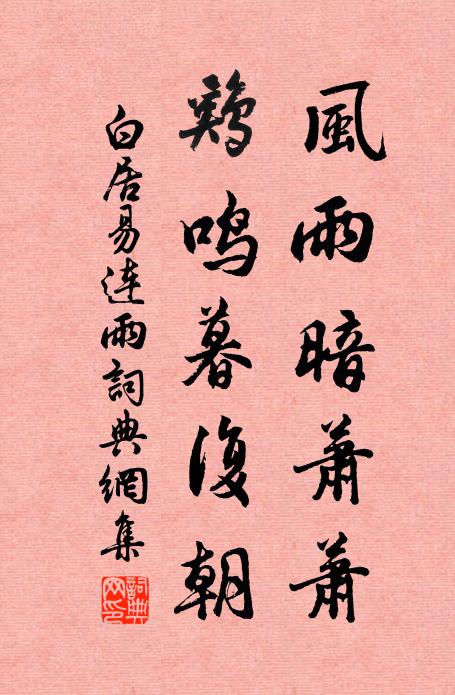 風雨暗蕭蕭
鶏鳴暮復朝
白居易連雨詞典網集
詞典網印